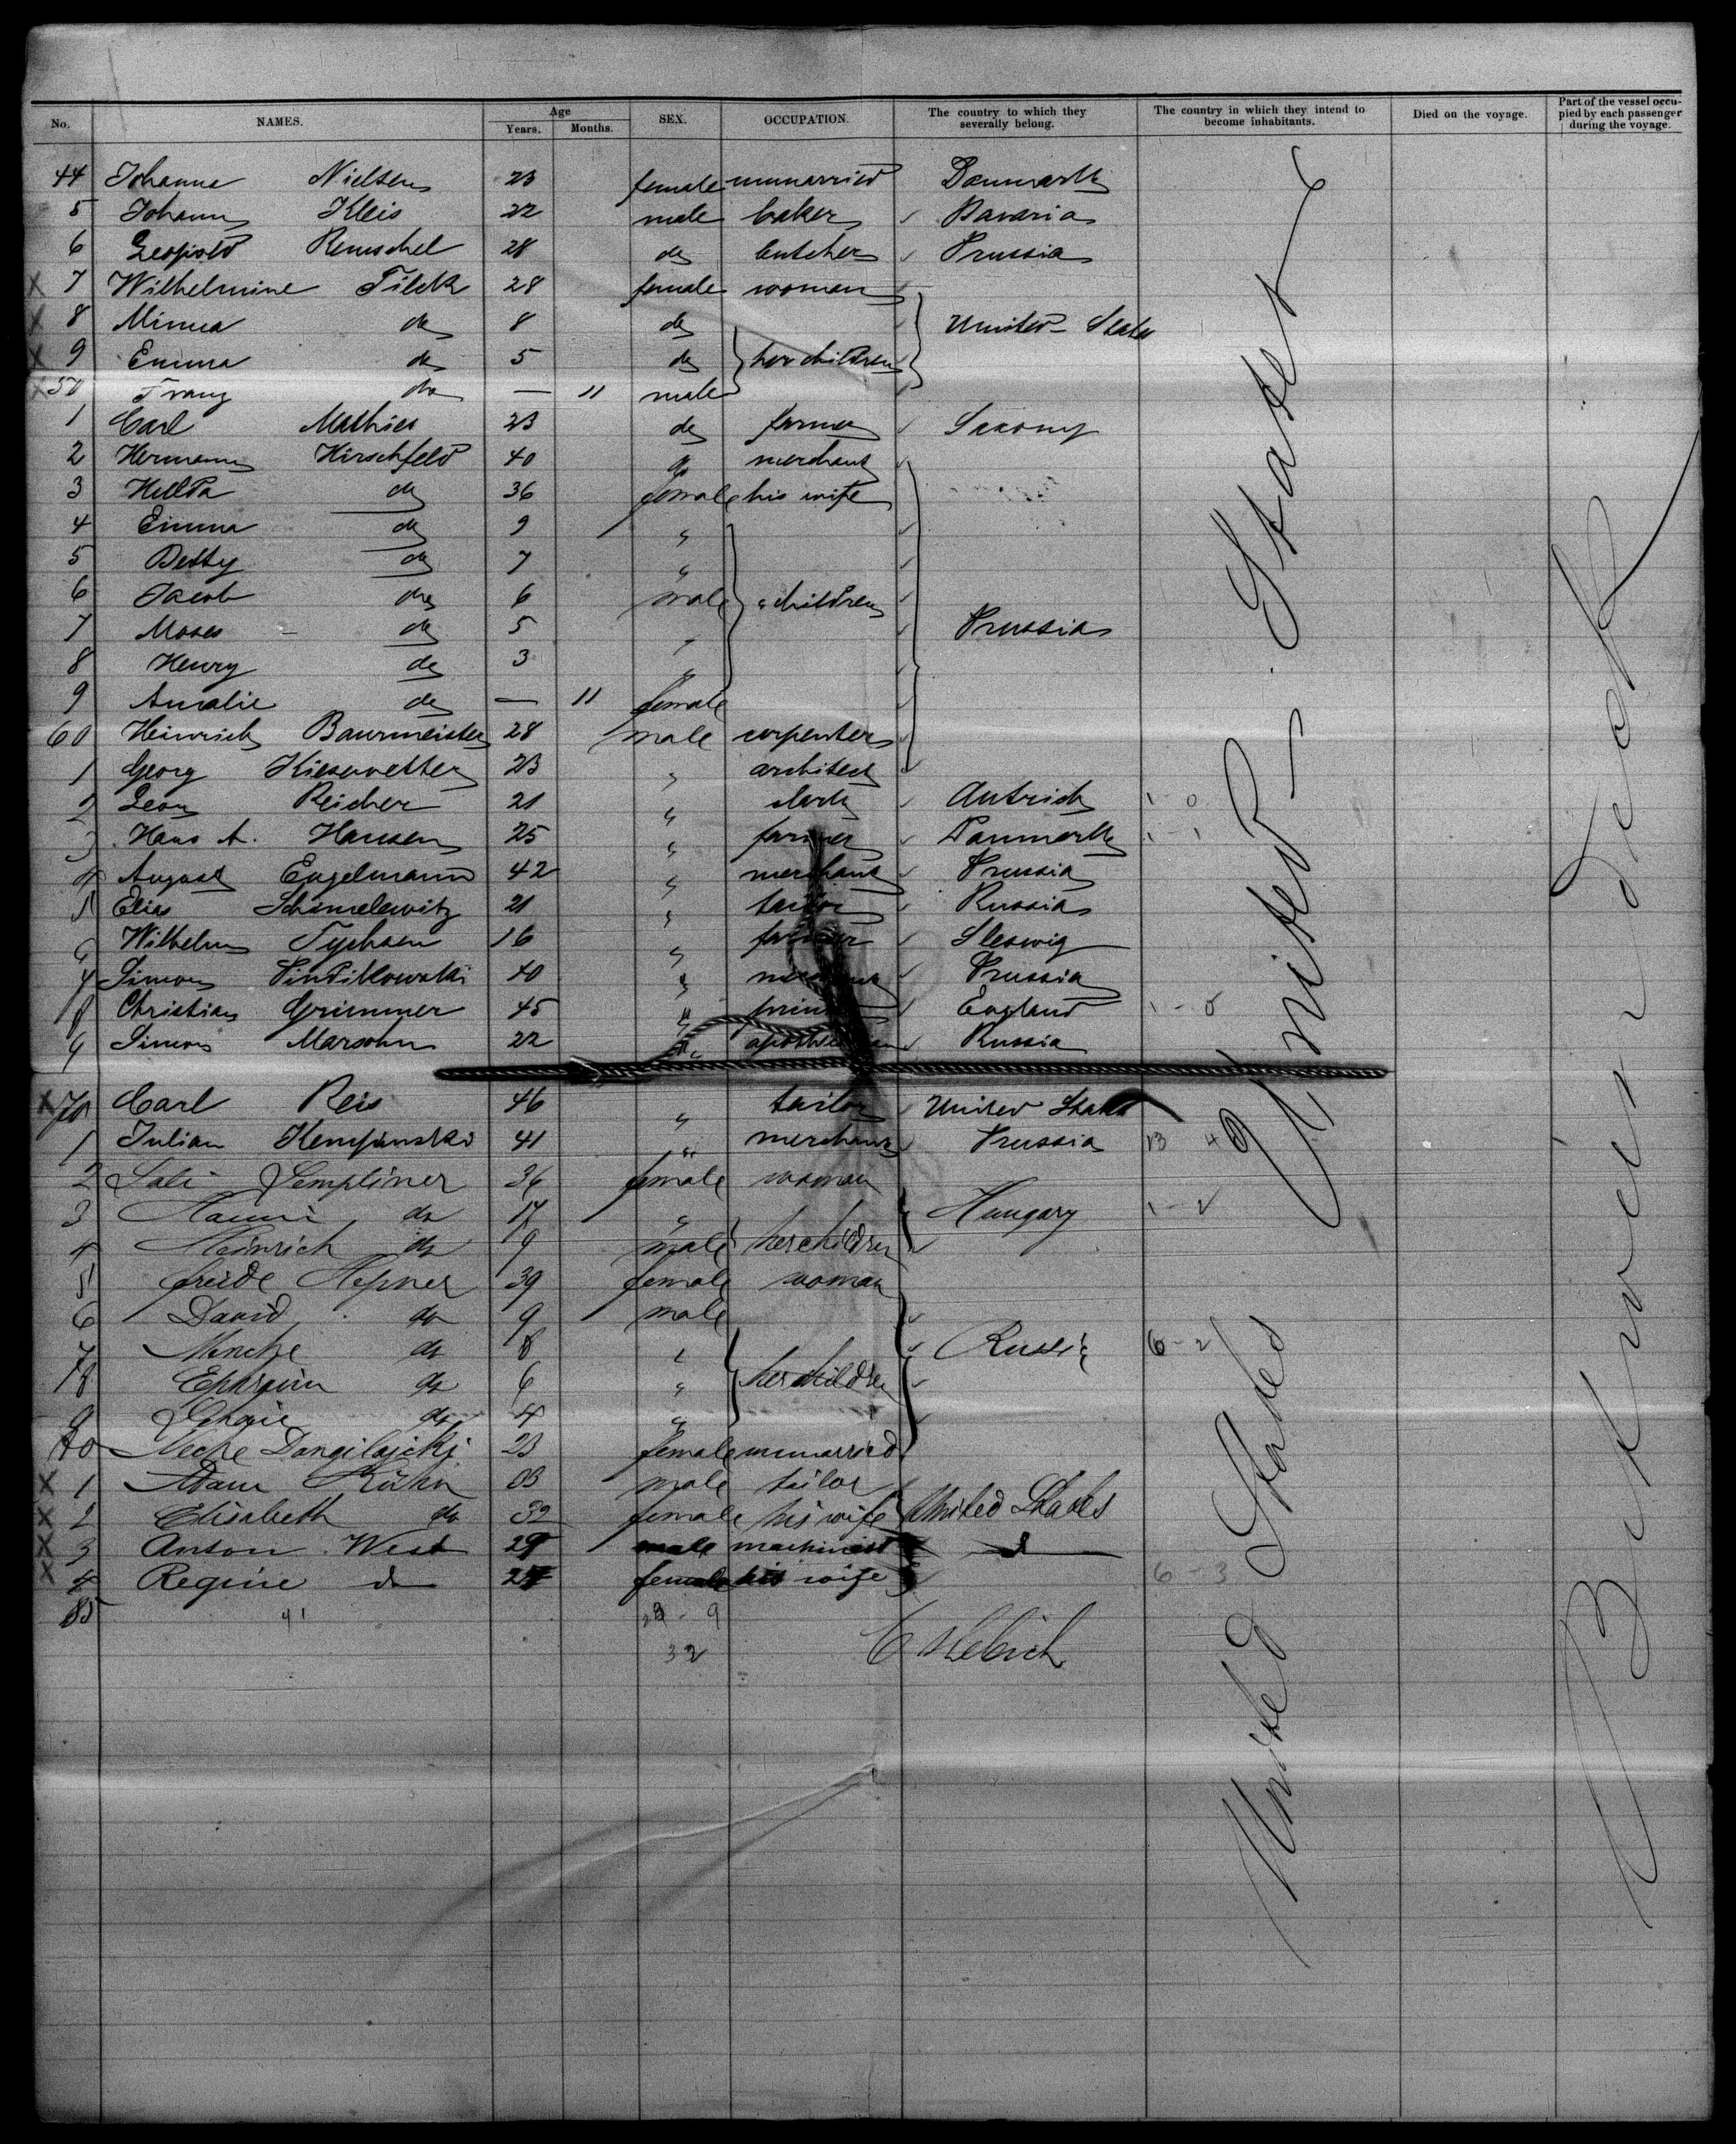 No. NAMES. Age Years. Months. SEX. OCCUPATION. The country to which they severally belong. The country in which they intend to become inhabitants. Died on the voyage. Part of the vessel occupied by each passenger during the voyage.
44 Johanna Nielsen 23 female unmarried Danmark
5 Johann Kleis 22 male baker Bavaria
6 Leopold Remschel 28 do butcher Prussia
X 7 Wilhelmine Tilck 28 female woman
X 8 Minna do 8 do United States
X 9 Emma do 5 do her children
X 50 Franz do — 11 male
1 Carl Mathies 23 do farmer Saxony
2 Hermann Hirschfeld 40 do merchant
3 Hulda do 36 female his wife
4 Emma do 9 "
5 Betty do 7 "
6 Jacob do 6 male " children
7 Moses do 5 " Prussia
8 Henry do 3 "
9 Amalie do — 11 female
60 Heinrich Baurmeister 28 male carpenter
1 Georg Kiesewetter 23 " architect
2 Leon Reicher 21 " clark Austrich 1-0
3 Hans A. Hansen 25 " farmer Danmark 1-1
4 August Engelmann 42 " merchant Prussia
5 Elias Schimelewitz 21 " tailor Russia
6 Wilhelm Tychsen 16 " farmer Sleswig
7 Simon 40 " merchant Prussia
8 Christian Grimmer 45 " England 1-0
9 Simon Marsohn 22 " Russia
X 70 Carl Reis 46 " tailor United States
1 Julian Kempinski 41 " merchant Prussia 13 4
2 Sali Sempliner 36 female woman
3 Hanni do 17 " Hungary 1-2
4 Heinrich do 9 male her children
5 Hepner 39 female woman
6 David do 9 male
7 do 8 " Russia 6-2
8 Ephraim do 6 " her children
9 do 4 "
80 23 female unmarried
X 1 Adam Kühn 33 male tailor
X 2 Elisabeth do 32 female his wife United States
X 3 Anton West 29 male machinist d
X 4 Regine do 27 female his wife 6-3
85 41 23-9
32
United States
United States
Between Deck